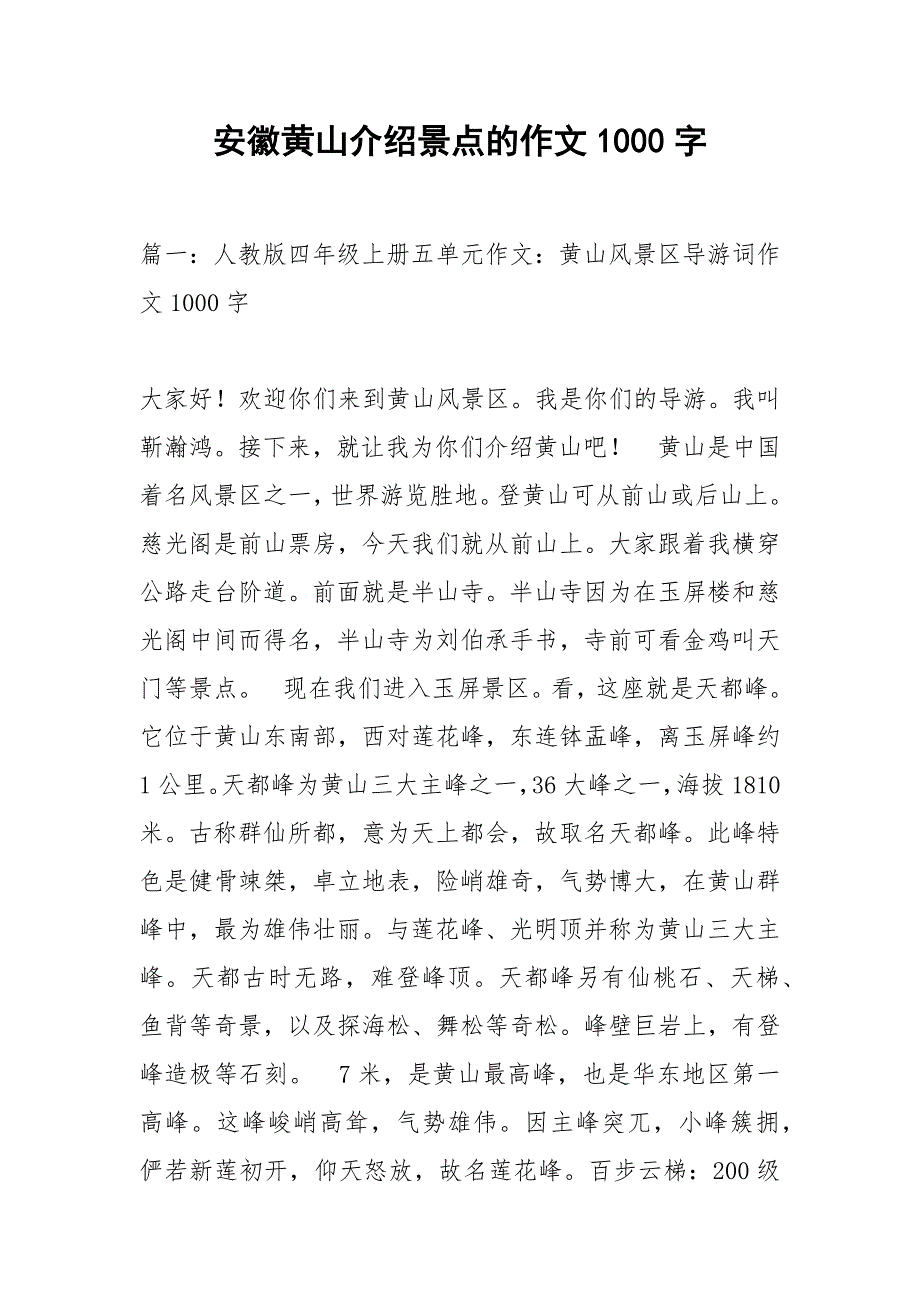 安徽黄山介绍景点的作文1000字
篇一：人教版四年级上册五单元作文：黄山风景区导游词作
文1000字
大家好！欢迎你们来到黄山风景区。我是你们的导游。我叫
靳瀚鸿。接下来，就让我为你们介绍黄山吧！ 黄山是中国
着名风景区之一，世界游览胜地。登黄山可从前山或后山上。
慈光阁是前山票房，今天我们就从前山上。大家跟着我横穿
公路走台阶道。前面就是半山寺。半山寺因为在玉屏楼和慈
光阁中间而得名，半山寺为刘伯承手书，寺前可看金鸡叫天
门等景点。 现在我们进入玉屏景区。看，这座就是天都峰。
它位于黄山东南部，西对莲花峰，东连钵盂峰，离玉屏峰约
1公里。天都峰为黄山三大主峰之一，36大峰之一，海拔1810
米。古称群仙所都，意为天上都会，故取名天都峰。此峰特
色是健骨竦桀，卓立地表，险峭雄奇，气势博大，在黄山群
峰中，最为雄伟壮丽。与莲花峰、光明顶并称为黄山三大主
峰。天都古时无路，难登峰顶。天都峰另有仙桃石、天梯、
鱼背等奇景，以及探海松、舞松等奇松。峰壁巨岩上，有登
峰造极等石刻。 7米，是黄山最高峰，也是华东地区第一
高峰。这峰峻峭高耸，气势雄伟。因主峰突兀，小峰簇拥，
俨若新莲初开，仰天怒放，故名莲花峰。百步云梯：200级